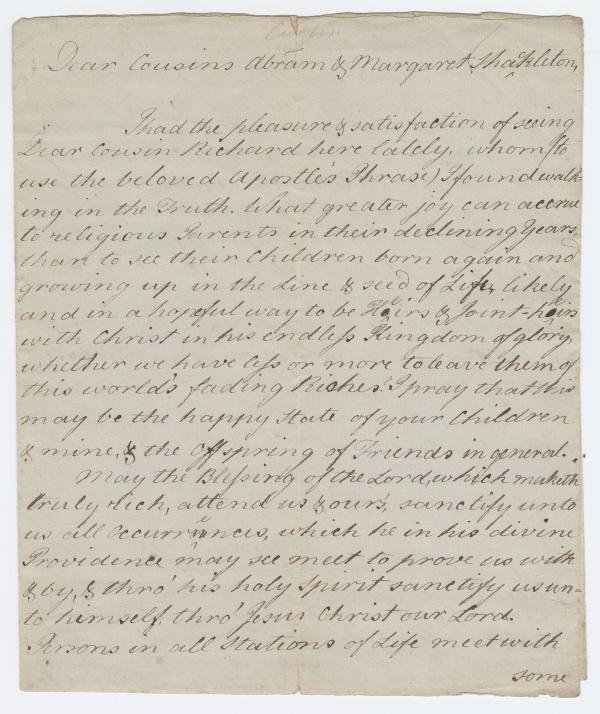 Dear Cousins Abram & Margaret Shakleton,
I had the pleasure & satisfaction of seeing
Dear Cousin Richard here lately, whom (to
use the beloved Apostle's Phrase) I found walk-
ing in the Truth. What greater joy can accrue
to religious Parents in their declining Years,
than to see their Children born again and
growing up in the Line & seed of Life, likely
and in a hopeful way to be Heirs & Joint-heirs
with Christ in his endless Kingdom of glory,
whether we have less or more to leave them of
this world's fading Riches. I pray that this
may be the happy state of your Children
& mine, & the Offspring of Friends in general.
May the Blessing of the Lord, which maketh
truly rich, attend us & ours, sanctify unto
us all Occurrences, which he in his divine
Providence may see meet to prove us with
& by, & thro' his holy Spirit sanctify us un-
to himself, thro' Jesus Christ our Lord.
Persons in all Stations of Life meet with
some